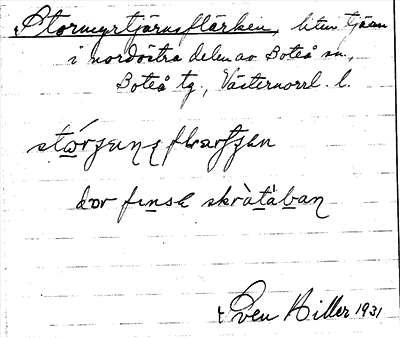 Stormyrtjärnsflärken, liten tjärn
i nordöstra delen av Boteå sn,
Boteå tg., Västernorrl. l.
dor finsk skràtában
Sven Hiller 1931